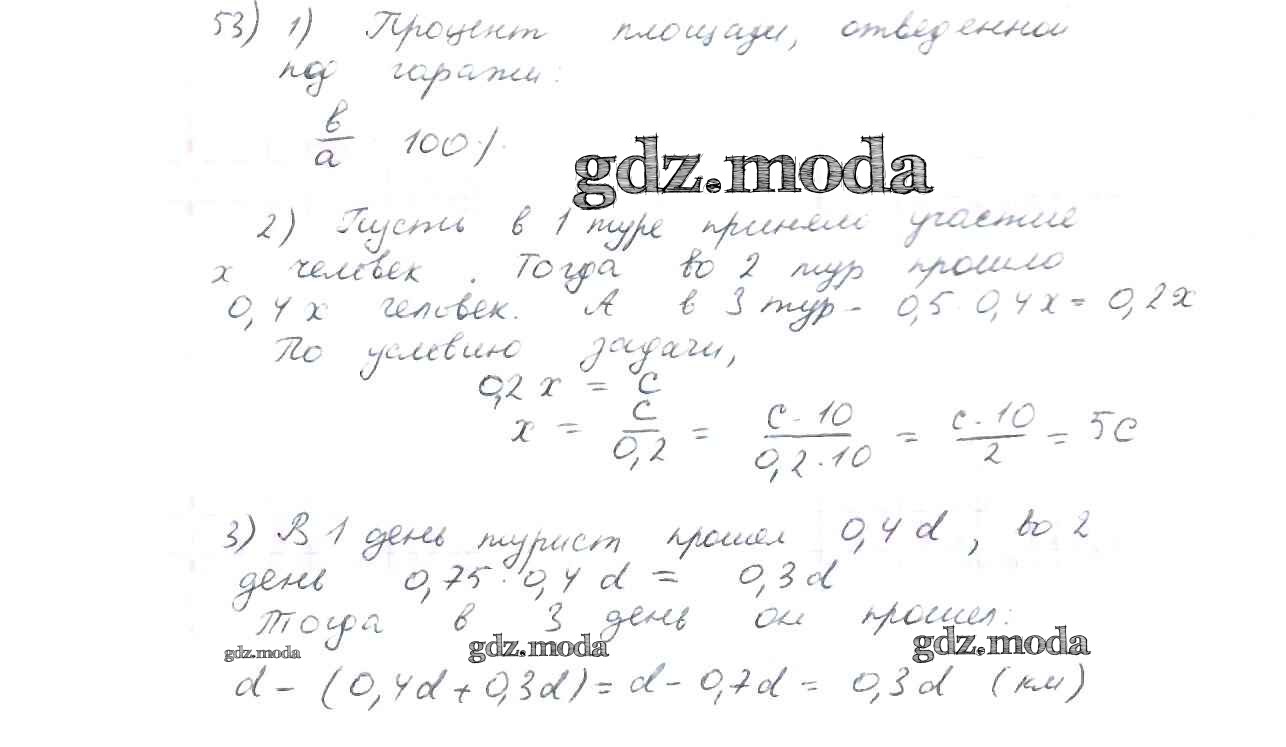 53) 1) Процент площади, отведенной
под гаражи:
в/а 100%
gdz.moda
2) Пусть в 1 туре приняло участие
x человек. Тогда во 2 тур прошло
0,4x человек. А в 3 тур - 0,5·0,4x = 0,2x
По условию задачи,
0,2x = c
x = c/0,2 = c·10/0,2·10 = c·10/2 = 5c
3) В 1 день турист прошел 0,4d, во 2
день 0,75·0,4d = 0,3d
Тогда в 3 день он прошел:
gdz.moda gdz.moda gdz.moda
d - (0,4d + 0,3d) = d - 0,7d = 0,3d (км)